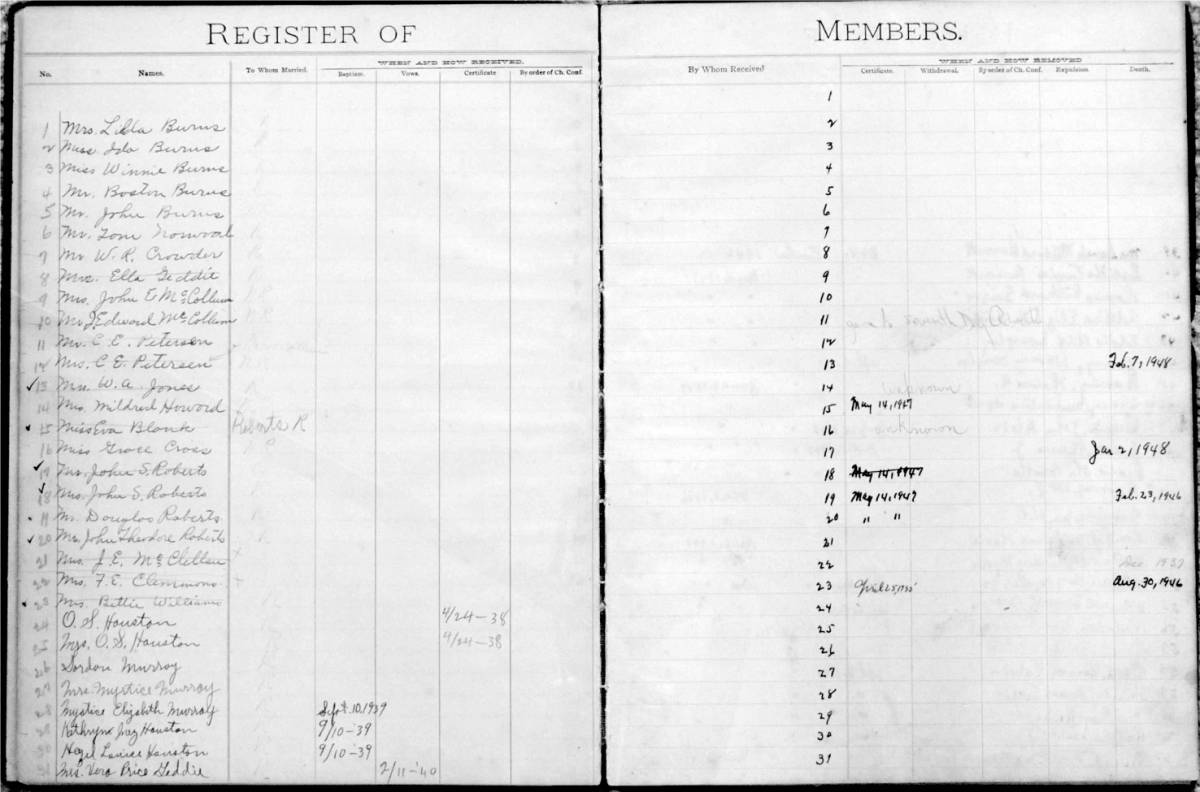 REGISTER OF MEMBERS.
No. Names. To Whom Married. WHEN AND HOW RECEIVED. Baptism. Vows. Certificate By order of Ch. Conf.
By Whom Received WHEN AND HOW REMOVED Certificate. Withdrawal. By order of Ch. Conf. Expulsion. Death.
1
1 Mrs. Lilla Burns 2
2 Miss Ida Burns 3
3 Miss Winnie Burns 4
4 Mr. Boston Burns 5
5 Mr. John Burns 6
6 Mr. Tom Norwood 7
7 Mr W. R. Crowder 8
8 Mrs. Ella Geddie 9
9 Mrs. John E McCollum 10
10 Mr J Edward McCollum 11
11 Mr. C. E. Petersen 12
12 Mrs. C E. Petersen 13 Feb. 7, 1948
✓13 Mrs. W. A. Jones 14 unknown
14 Mrs. Mildred Howard 15 May 14, 1947
15 Miss Eva Blank Roberts R 16 unknown
16 Miss Grace Cross 17 Jan 2, 1948
✓17 Mr. John S. Roberts 18 May 14, 1947
✓18 Mrs. John S. Roberts 19 May 14, 1947 Feb. 23, 1946
19 Mr. Douglas Roberts 20 " "
✓20 Mr. John Theodore Roberts 21
21 Mrs. J. E. McClellan 22 Dec 1937
22 Mrs. F. E. Clemmons 23 Aug. 30, 1946
23 Mrs. Bettie Williams 24
24 O. S. Houston 4/24-38 25
25 Mrs. O. S. Houston 4/24-38 26
26 Gordon Murray 27
27 Mrs Mystice Murray 28
28 Mystice Elizabeth Murray Sept. 10, 1939 29
29 Kathryn Houston 9/10-39 30
30 Hazel Louise Houston 9/10-39 31
31 Mrs. Vera Price Geddie 2/11-'40